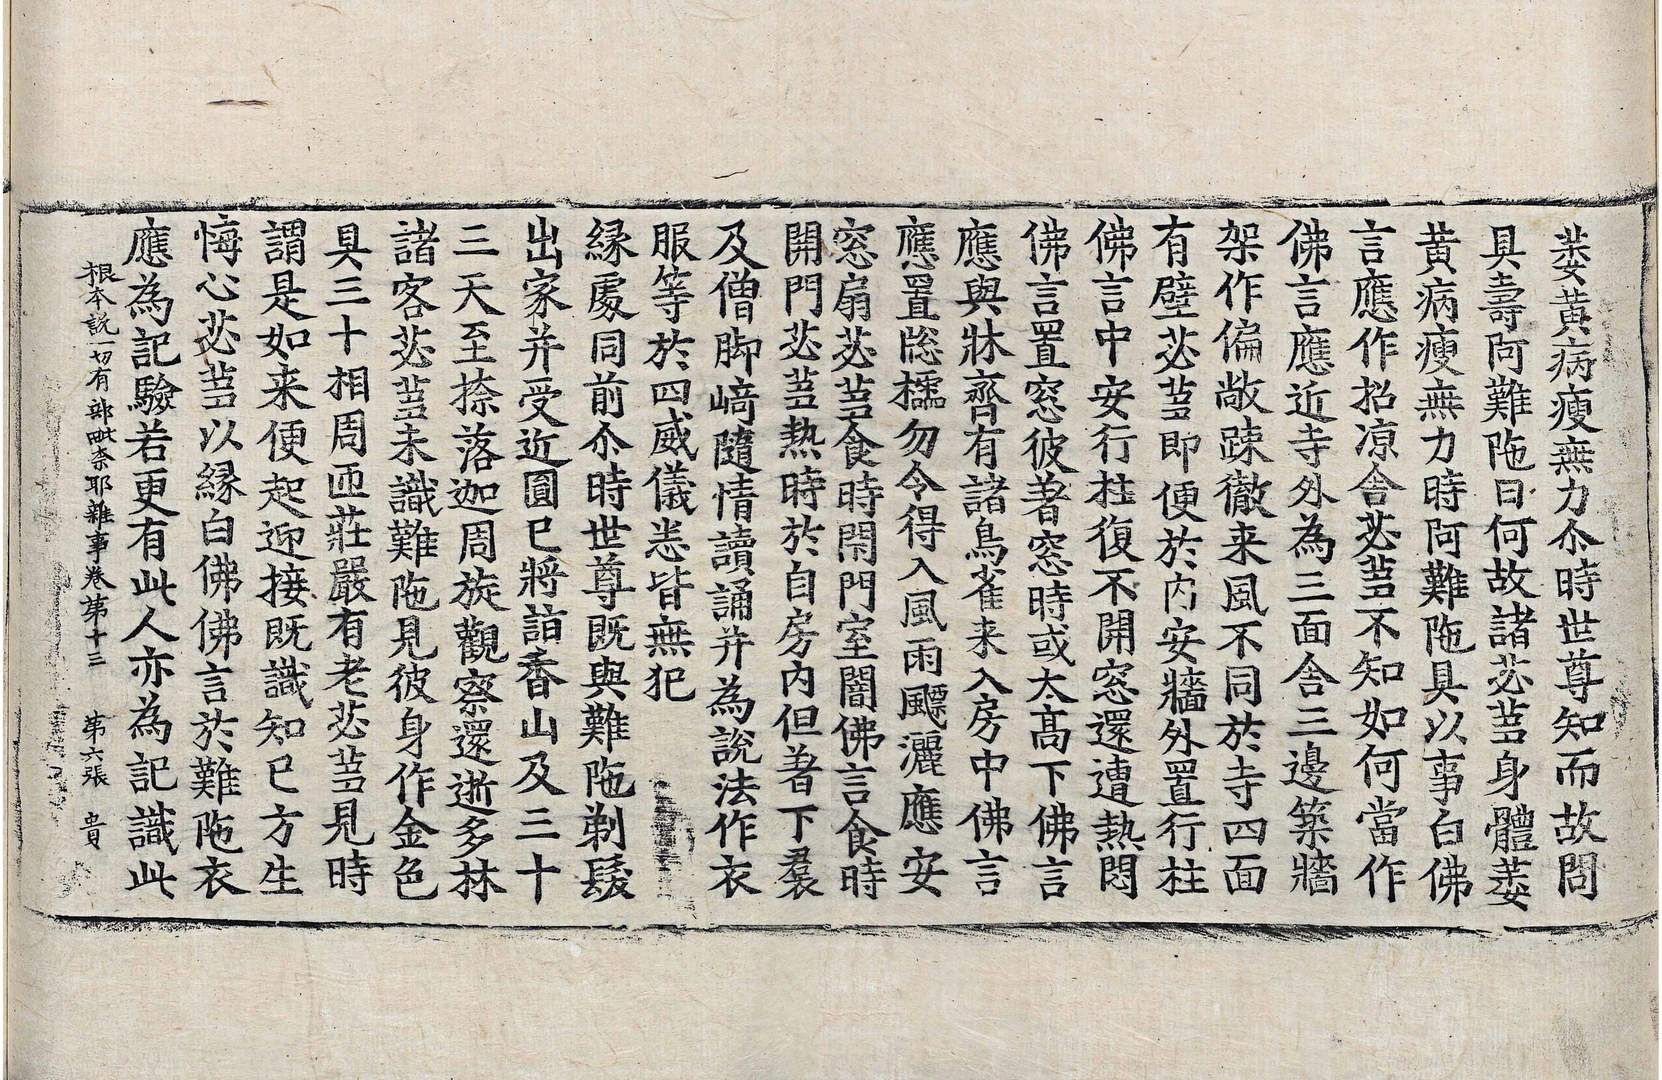 萎黄病瘦無力尒時世尊知而故問
具壽阿難陁曰何故諸苾蒭身體萎
黄病瘦無力時阿難陁具以事白佛
言應作招凉舎苾蒭不知如何當作
佛言應近寺外為三面舎三邊築牆
架作偏敞踈徹来風不同於寺四面
有壁苾蒭即便於内安牆外置行柱
佛言中安行柱復不開窓還遭熱悶
佛言置窓彼著窓時或太髙下佛言
應與牀齊有諸鳥雀来入房中佛言
應置牎櫺勿令得入風雨飄灑應安
窓扇苾蒭食時閇門室闇佛言食時
開門苾蒭熱時於自房内但著下裠
及僧脚崎隨情讀誦并為說法作衣
服等於四威儀悉皆無犯
縁處同前尒時世尊既與難陁剃髮
出家并受近圓已將詣香山及三十
三天至捺落迦周旋觀察還逝多林
諸客苾蒭未識難陁見彼身作金色
具三十相周匝莊嚴有老苾蒭見時
謂是如来便起迎接既識知已方生
悔心苾蒭以縁白佛佛言於難陁衣
應為記驗若更有此人亦為記識此
根本說一切有部毗奈耶雜事卷第十三 第六張 貴